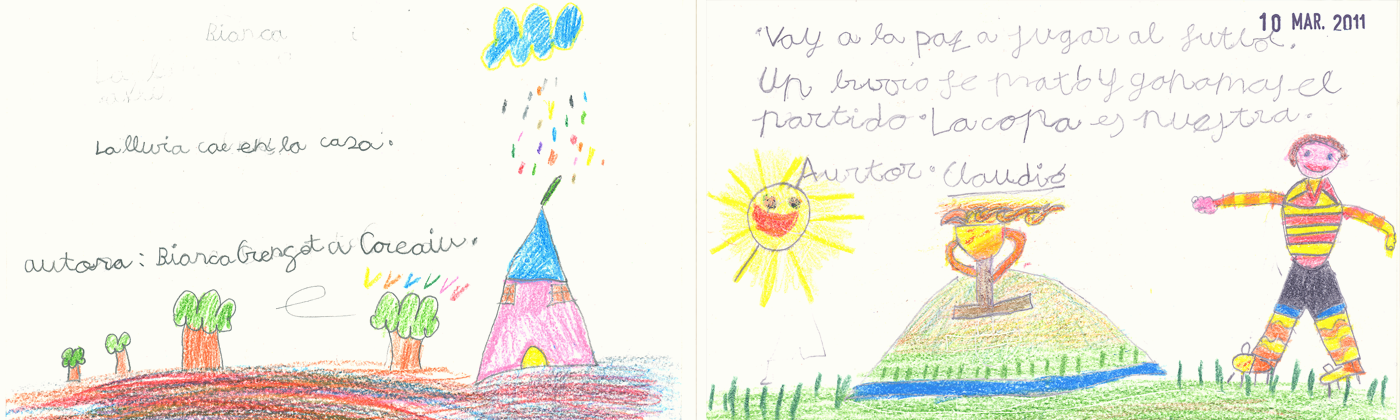 Bianca
La lluvia cae en la casa.
autora: Bianca Coreaiu.
10 MAR. 2011
"Voy a la paz a jugar al futbol.
Un burro se mató y ganamos el
partido. La copa es nuestra.
Aurtor: Claudio